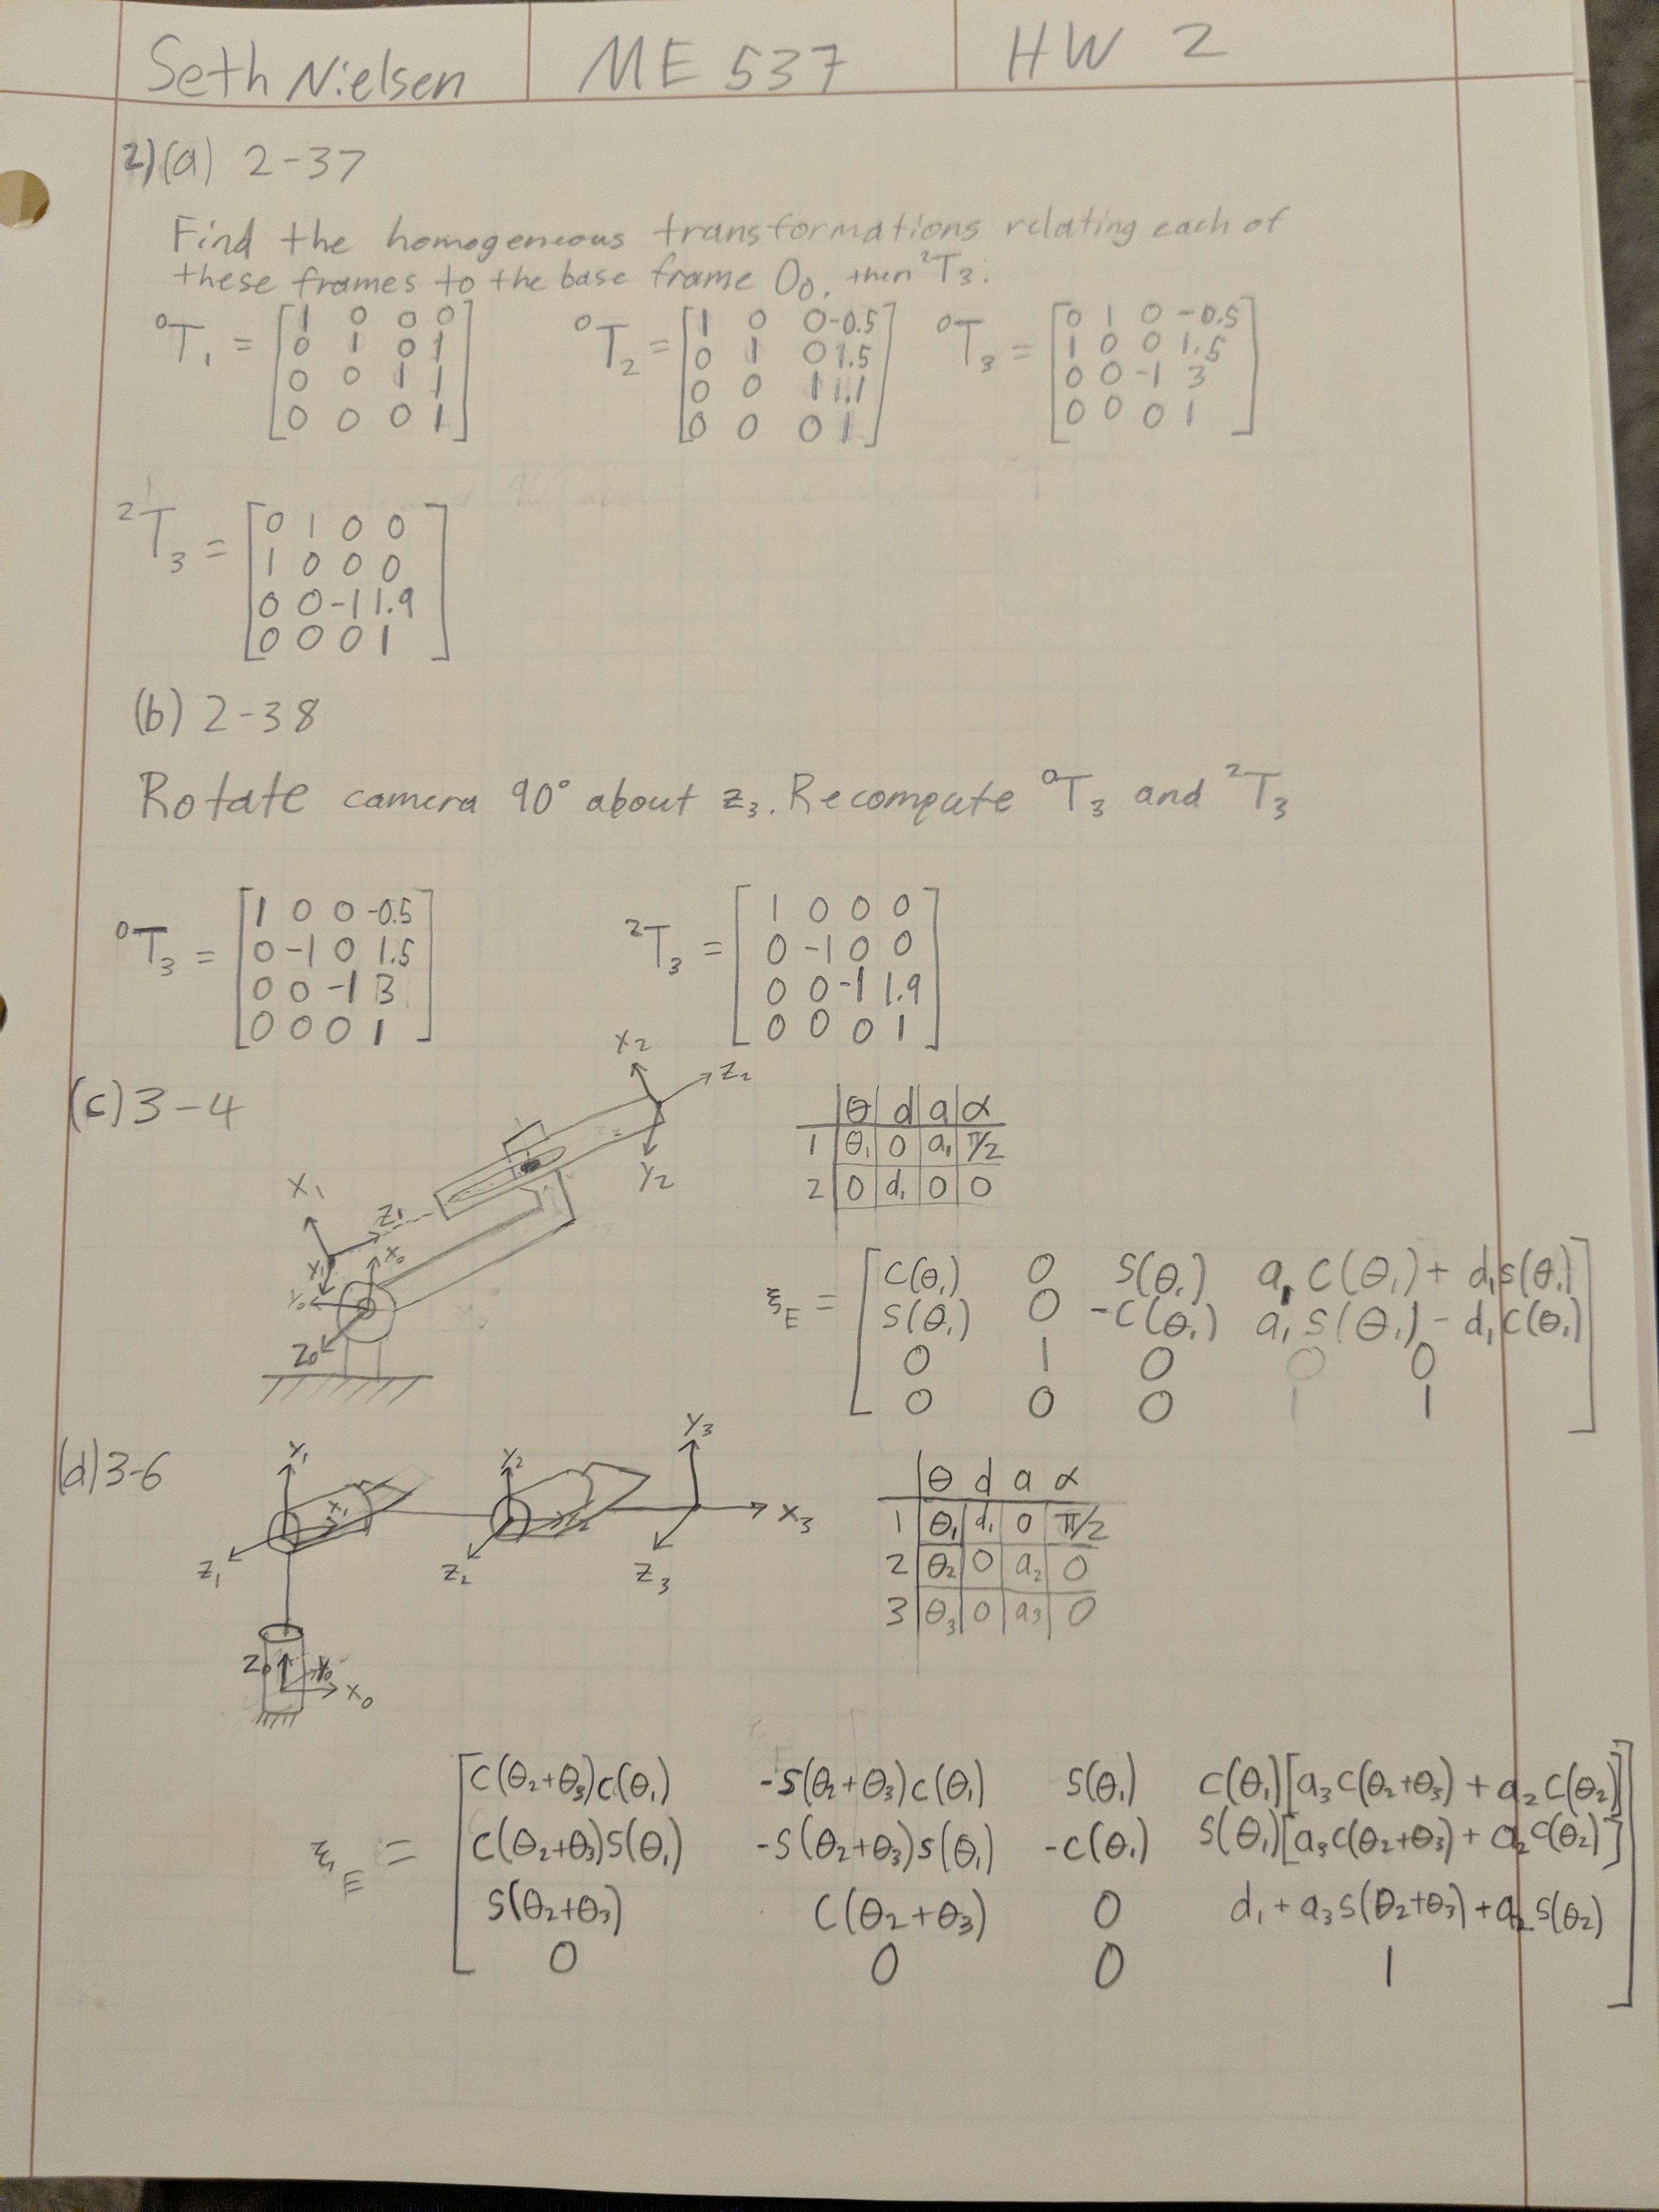 Seth Nielsen ME 537 HW 2
2)(a) 2-37
Find the homogeneous transformations relating each of
these frames to the base frame O₀, then ²T₃.
⁰T₁ = [1 0 0 0
0 1 0 1
0 0 1 1
0 0 0 1]
⁰T₂ = [1 0 0 -0.5
0 1 0 1.5
0 0 1 1.1
0 0 0 1]
⁰T₃ = [0 1 0 -0.5
1 0 0 1.5
0 0 -1 3
0 0 0 1]
²T₃ = [0 1 0 0
1 0 0 0
0 0 -1 1.9
0 0 0 1]
(b) 2-38
Rotate camera 90° about z₃. Recompute ⁰T₃ and ²T₃
⁰T₃ = [1 0 0 -0.5
0 -1 0 1.5
0 0 -1 3
0 0 0 1]
²T₃ = [1 0 0 0
0 -1 0 0
0 0 -1 1.9
0 0 0 1]
(c) 3-4
X₂
Z₂
Y₂
X₁
Z₁
X₀
Y₁
Y₀
Z₀
θ d a α
1 θ₁ 0 a₁ π/2
2 0 d₁ 0 0
ξ_E = [C(θ₁) 0 S(θ₁) a₁C(θ₁) + d₁s(θ₁)
S(θ₁) 0 -C(θ₁) a₁s(θ₁) - d₁c(θ₁)
0 1 0 0
0 0 0 1]
(d) 3-6
Y₁
X₁
Z₁
Y₂
Z₂
Y₃
X₃
Z₃
Z₀
Y₀
X₀
θ d a α
1 θ₁ d₁ 0 π/2
2 θ₂ 0 a₂ 0
3 θ₃ 0 a₃ 0
ξ_E = [C(θ₂+θ₃)c(θ₁) -s(θ₂+θ₃)c(θ₁) S(θ₁) c(θ₁)[a₃c(θ₂+θ₃) + a₂c(θ₂)]
C(θ₂+θ₃)s(θ₁) -s(θ₂+θ₃)s(θ₁) -c(θ₁) s(θ₁)[a₃c(θ₂+θ₃) + a₂c(θ₂)]
S(θ₂+θ₃) C(θ₂+θ₃) 0 d₁ + a₃s(θ₂+θ₃) + a₂s(θ₂)
0 0 0 1]